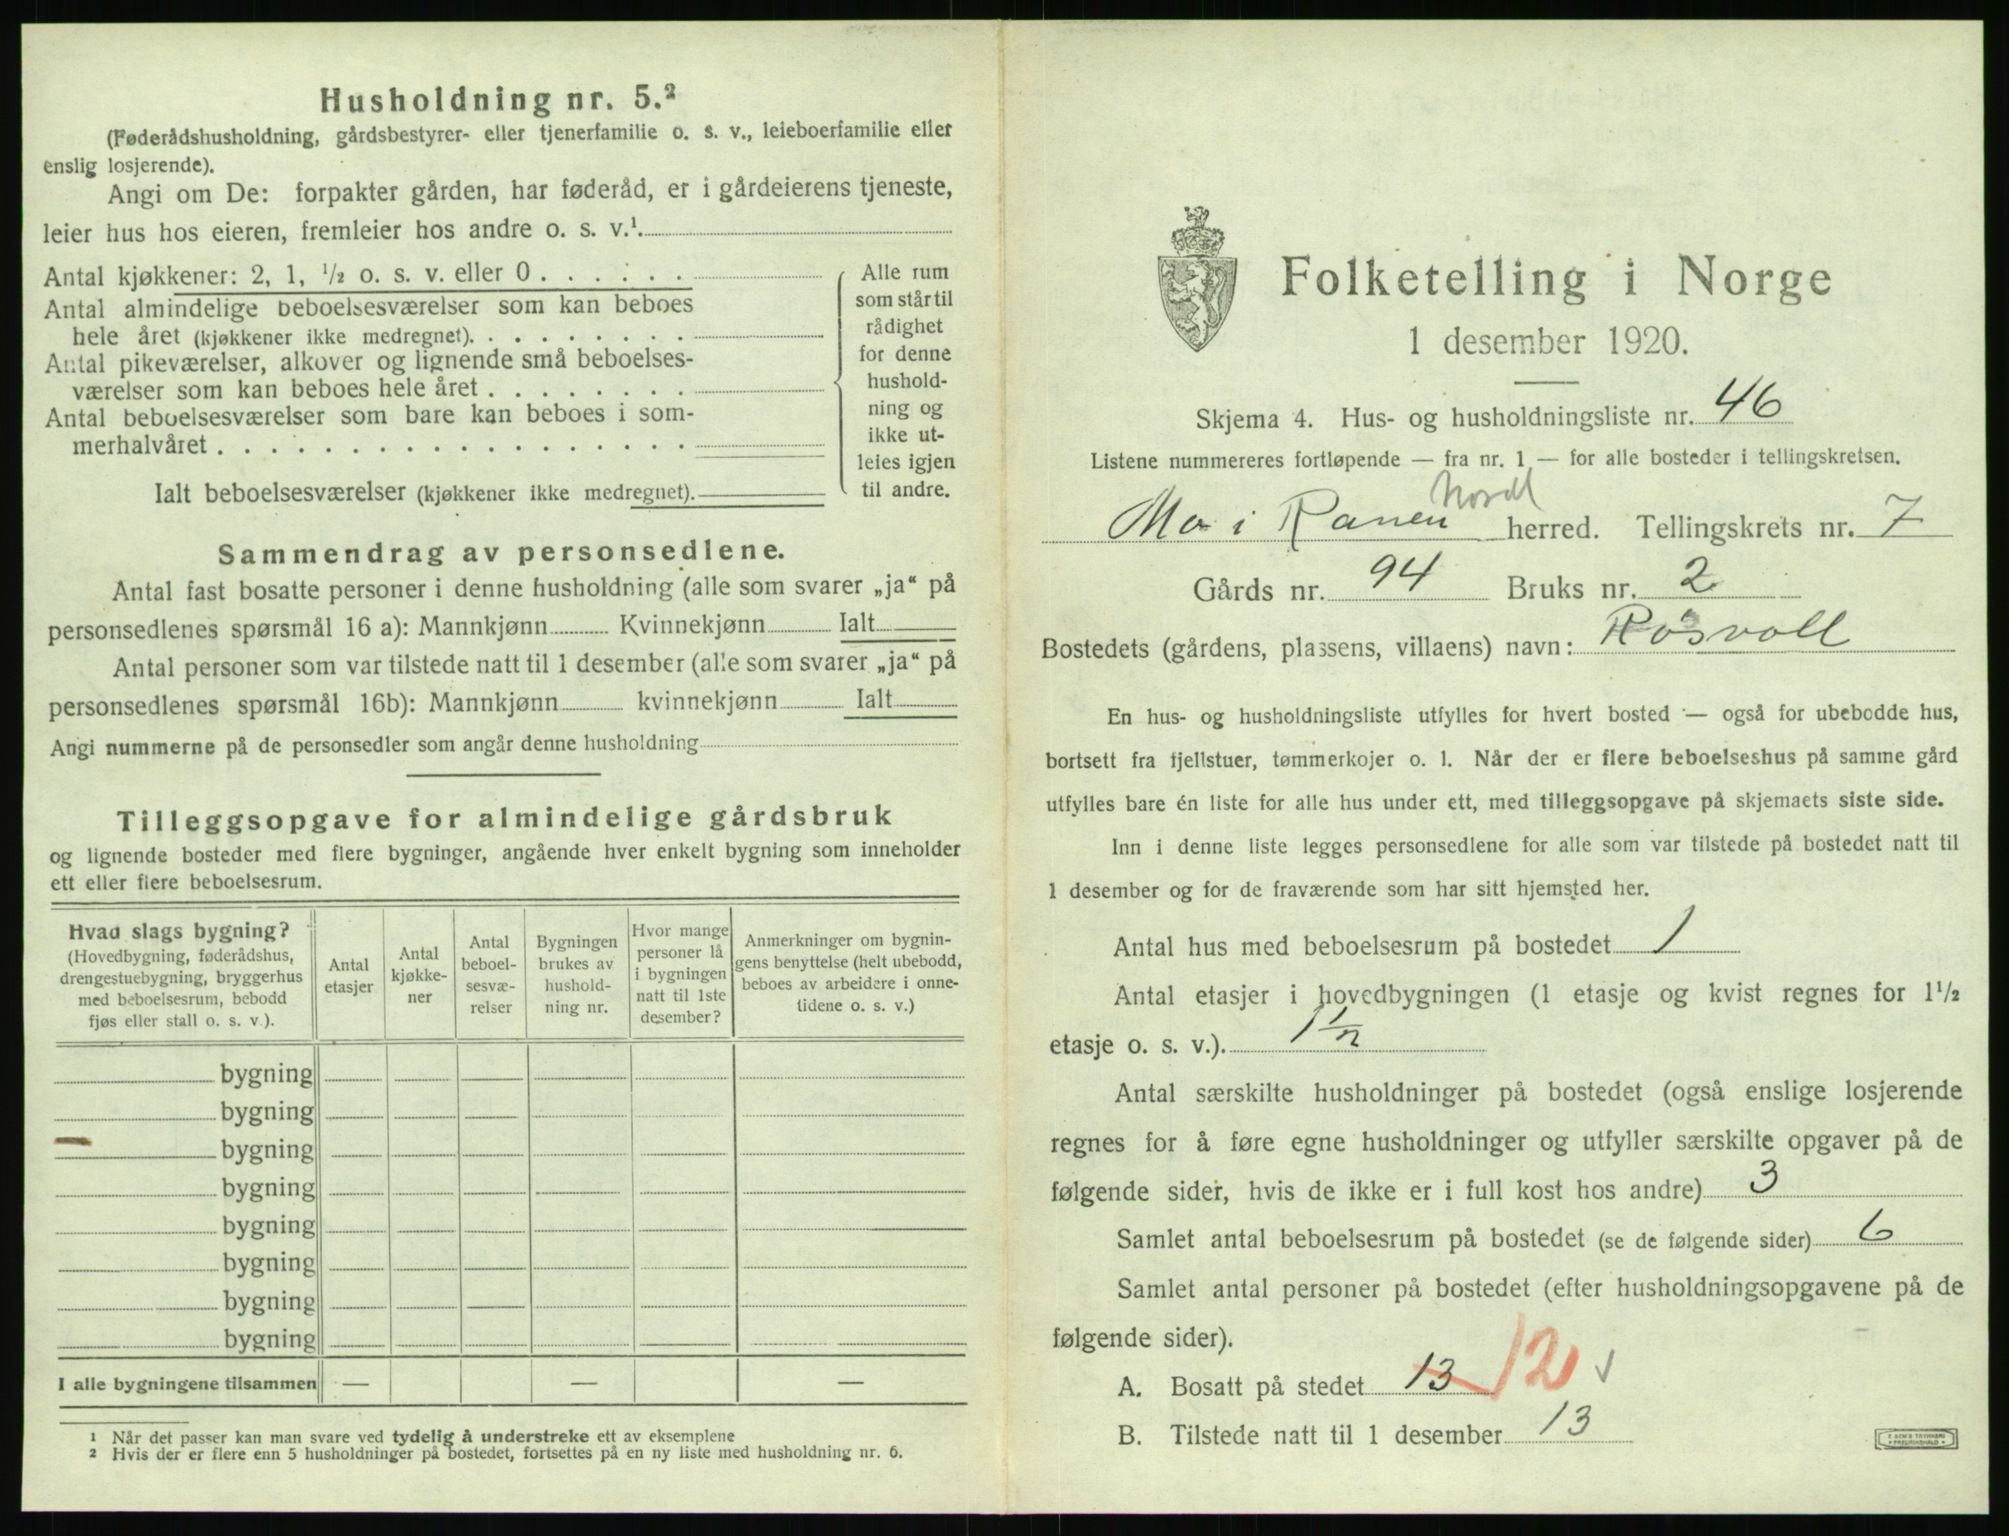 Husholdning nr. 5.²
(Føderådshusholdning, gårdsbestyrer- eller tjenerfamilie o. s. v., leieboerfamilie eller
enslig losjerende).
Angi om De: forpakter gården, har føderåd, er i gårdeierens tjeneste,
leier hus hos eieren, fremleier hos andre o. s. v.¹
Antal kjøkkener: 2, 1, ½ o. s. v. eller 0 . . . . . .
Antal almindelige beboelsesværelser som kan beboes
hele året (kjøkkener ikke medregnet). . . . . . . . .
Antal pikeværelser, alkover og lignende små beboelses-
værelser som kan beboes hele året . . . . . . . .
Antal beboelsesværelser som bare kan beboes i som-
merhalvåret . . . . . . . . . . . . . . . . . .
Ialt beboelsesværelser (kjøkkener ikke medregnet).
Alle rum
som står til
rådighet
for denne
hushold-
ning og
ikke ut-
leies igjen
til andre.
Sammendrag av personsedlene.
Antal fast bosatte personer i denne husholdning (alle som svarer „ja“ på
personsedlenes spørsmål 16 a): Mannkjønn Kvinnekjønn Ialt
Antal personer som var tilstede natt til 1 desember (alle som svarer „ja“ på
personsedlenes spørsmål 16b): Mannkjønn kvinnekjønn Ialt
Angi nummerne på de personsedler som angår denne husholdning
Tilleggsopgave for almindelige gårdsbruk
og lignende bosteder med flere bygninger, angående hver enkelt bygning som inneholder
ett eller flere beboelsesrum.
Hvad slags bygning?
(Hovedbygning, føderådshus,
drengestuebygning, bryggerhus
med beboelsesrum, bebodd
fjøs eller stall o. s. v.).
Antal
etasjer
Antal
kjøkke-
ner
Antal
beboel-
sesvæ-
relser
Bygningen
brukes av
hushold-
ning nr.
Hvor mange
personer lå
i bygningen
natt til 1ste
desember?
Anmerkninger om bygnin-
gens benyttelse (helt ubebodd,
beboes av arbeidere i onne-
tidene o. s. v.)
bygning
bygning
bygning
bygning
bygning
bygning
bygning
bygning
I alle bygningene tilsammen — — —
1 Når det passer kan man svare ved tydelig å understreke ett av eksemplene
2 Hvis der er flere enn 5 husholdninger på bostedet, fortsettes på en ny liste med husholdning nr. 6.
Folketelling i Norge
1 desember 1920.
Skjema 4. Hus- og husholdningsliste nr. 46
Listene nummereres fortløpende — fra nr. 1 — for alle bosteder i tellingskretsen.
Nordl
Mo i Ranen herred. Tellingskrets nr. 7
Gårds nr. 94 Bruks nr. 2
Bostedets (gårdens, plassens, villaens) navn: Røsvoll
En hus- og husholdningsliste utfylles for hvert bosted — også for ubebodde hus,
bortsett fra fjellstuer, tømmerkojer o. l. Når der er flere beboelseshus på samme gård
utfylles bare én liste for alle hus under ett, med tilleggsopgave på skjemaets siste side.
Inn i denne liste legges personsedlene for alle som var tilstede på bostedet natt til
1 desember og for de fraværende som har sitt hjemsted her.
Antal hus med beboelsesrum på bostedet 1
Antal etasjer i hovedbygningen (1 etasje og kvist regnes for 1½
etasje o. s. v.). 1½
Antal særskilte husholdninger på bostedet (også enslige losjerende
regnes for å føre egne husholdninger og utfyller særskilte opgaver på de
følgende sider, hvis de ikke er i full kost hos andre) 3
Samlet antal beboelsesrum på bostedet (se de følgende sider) 6
Samlet antal personer på bostedet (efter husholdningsopgavene på de
følgende sider).
A. Bosatt på stedet 13 12 ✓
B. Tilstede natt til 1 desember 13